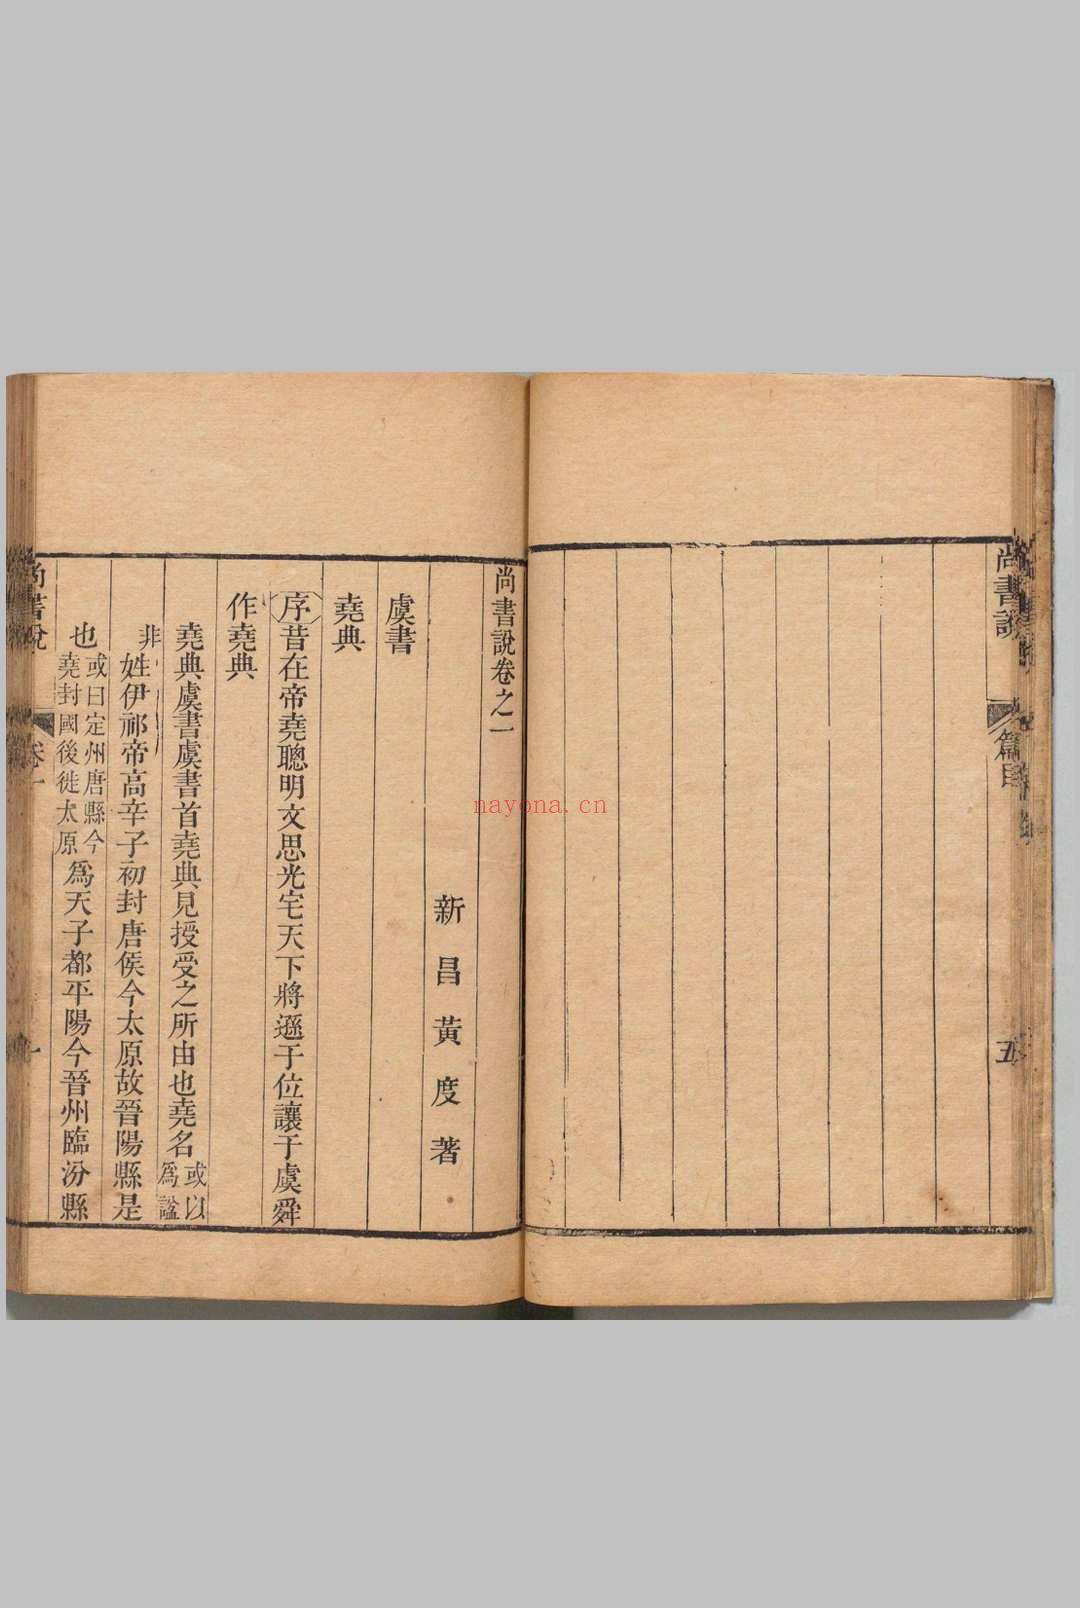 尚書說
篇目
五
尚書說卷之一
新昌黃度著
虞書
堯典
序昔在帝堯聰明文思光宅天下將遜于位讓于虞舜
作堯典
堯典虞書虞書首堯典見授受之所由也堯名或以為謚
非姓伊祁帝高辛子初封唐侯今太原故晉陽縣是
也或曰定州唐縣今堯封國後徙太原為天子都平陽今晉州臨汾縣
尚書說
卷一
一
nayona.cn